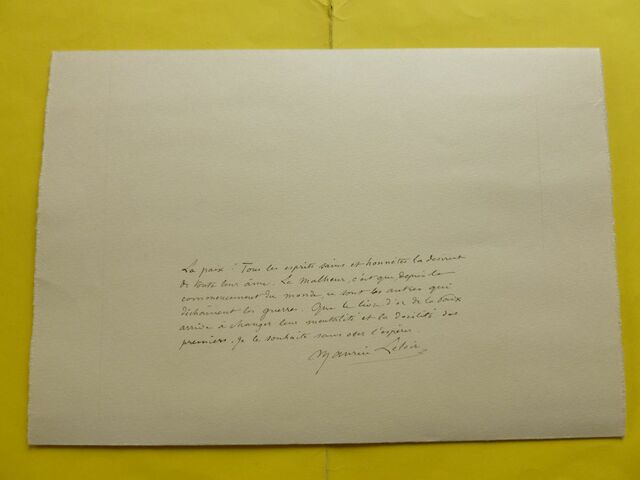 La paix ! Tous les esprits sains et honnêtes la desirent
de toute leur âme. Le Malheur, c'est que depuis le
commencement du monde, ce sont les autres qui
déchainent les guerres. Que le livre d'or de la Paix
arrive à changer leur mentalité et la docilité des
premiers. Je le souhaite sans oser l'espérer.
Maurice Leloir